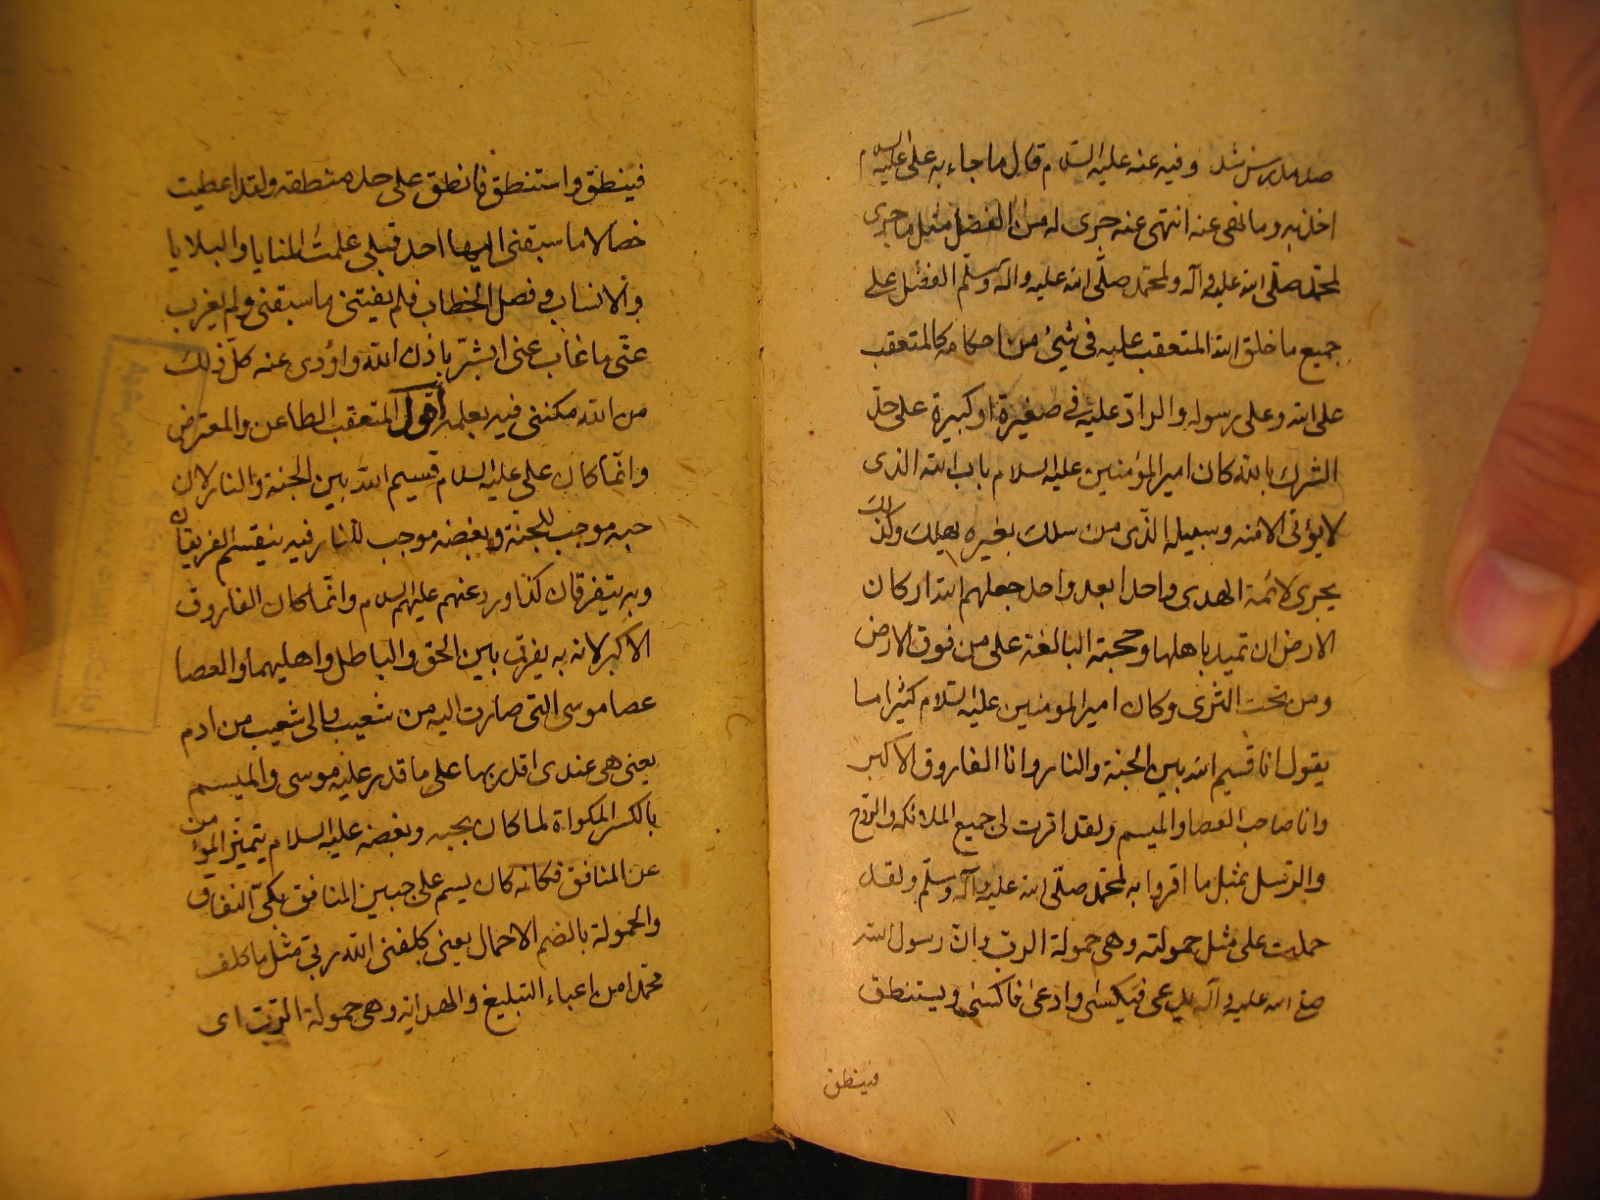 وفيه عنه عليه السلام قال ما جاء به على عليه السلام
اخذ به وما نهى عنه انتهى عنه جرى له من الفضل مثل ما جرى
لمحمد صلّى الله عليه وآله ولمحمد صلّى الله عليه وآله وسلّم الفضل على
جميع ما خلق الله المتعقب عليه فى شئ من احكامه كالمتعقب
على الله وعلى رسوله والرادّ عليه فى صغيرة او كبيرة على حدّ
الشرك بالله كان امير المؤمنين عليه السلام باب الله الذى
لا يؤتى الا منه وسبيله الذّى من سلك بغيره يهلك وكذلك
يجرى لائمة الهدى واحدا بعد واحد جعلهم الله اركان
الارض ان تميد باهلها وحجته البالغة على من فوق الارض
ومن تحت الثرى وكان امير المومنين عليه السّلام كثيرا ما
يقول انا قسيم الله بين الجنة والنار وانا الفاروق الاكبر
وانا صاحب العصا والميسم ولقد اقرت لى جميع الملائكه والرّوح
والرّسل بمثل ما اقروا به لمحمّد صلّى الله عليه وآله وسلّم ولقد
حملت على مثل حمولته وهى حمولة الرب وانّ رسول الله
صلى الله عليه وآله يدعى فيكسى وادعى فاكسى ويستنطق
فينطق
فينطق واستنطق فانطق على حد منطقه ولقد اعطيت
خصالا ما سبقنى اليها احد قبلى علمت المنايا والبلايا
والانساب وفصل الخطاب فلم يفتنى ما سبقنى ولم يغرب
عنّى ما غاب عنى ابشّر باذن الله واؤدى عنه كلّ ذلك
من الله مكننى فيه بعلمه اقول المتعقب الطاعن والمعترض
وانّما كان على عليه السلام قسيم الله بين الجنة والنار لان
حبه موجب للجنة وبغضه موجب للنار فبه ينقسم الفريقان
وبه يتفرقان كذا ورد عنهم عليهم السلام وانّما كان الفاروق
الاكبر لانه به يفرق بين الحق والباطل واهليهما والعصا
عصا موسى التى صارت اليه من شعيب والى شعيب من ادم
يعنى هى عندى اقدر بها على ما قدر عليه موسى والميسم
بالكسر المكواة لما كان بحبه وبغضه عليه السلام يتميّز المؤمن
عن المنافق فكانه كان يسم على جبين المنافق بكىّ النفاق
والحمولة بالضم الاحمال يعنى كلفنى الله ربى مثل ما كلف
محمّدا من اعباء التبليغ والهدايه وهى حمولة الرّب اى